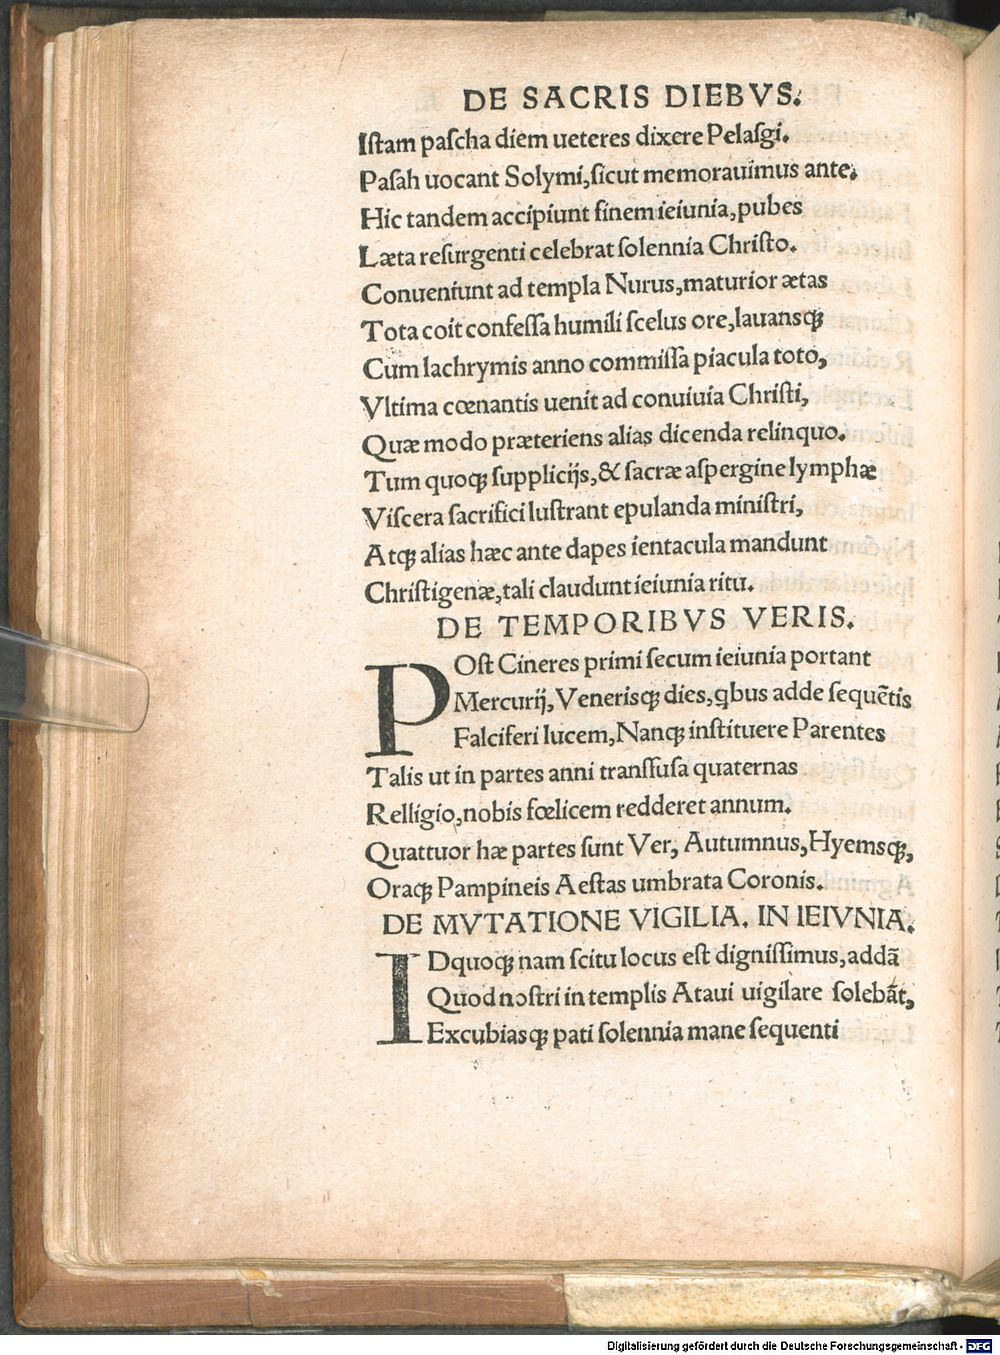 DE SACRIS DIEBVS.
Iſtam paſcha diem ueteres dixere Pelaſgi.
Paſah uocant Solymi, ſicut memorauimus ante.
Hic tandem accipiunt finem ieiunia, pubes
Læta reſurgenti celebrat ſolennia Chriſto.
Conueniunt ad templa Nurus, maturior ætas
Tota coit confeſſa humili ſcelus ore, lauansqꝫ
Cum lachrymis anno commiſſa piacula toto,
Vltima cœnantis uenit ad conuiuia Chriſti,
Quæ modo præteriens alias dicenda relinquo.
Tum quoqꝫ ſupplicijs, & ſacræ aſpergine lymphæ
Viſcera ſacrifici luſtrant epulanda miniſtri,
Atqꝫ alias hæc ante dapes ientacula mandunt
Chriſtigenæ, tali claudunt ieiunia ritu.
DE TEMPORIBVS VERIS.
POſt Cineres primi ſecum ieiunia portant
Mercurij, Venerisqꝫ dies, qͥbus adde ſequẽtis
Falciferi lucem, Nanqꝫ inſtituere Parentes
Talis ut in partes anni transfuſa quaternas
Relligio, nobis fœlicem redderet annum.
Quattuor hæ partes ſunt Ver, Autumnus, Hyemsqꝫ,
Oraqꝫ Pampineis Aeſtas umbrata Coronis.
DE MVTATIONE VIGILIA. IN IEIVNIA.
IDquoqꝫ nam ſcitu locus eſt digniſſimus, addã
Quod noſtri in templis Ataui uigilare ſolebãt,
Excubiasqꝫ pati ſolennia mane ſequenti
Digitalisierung gefördert durch die Deutsche Forschungsgemeinschaft - DFG